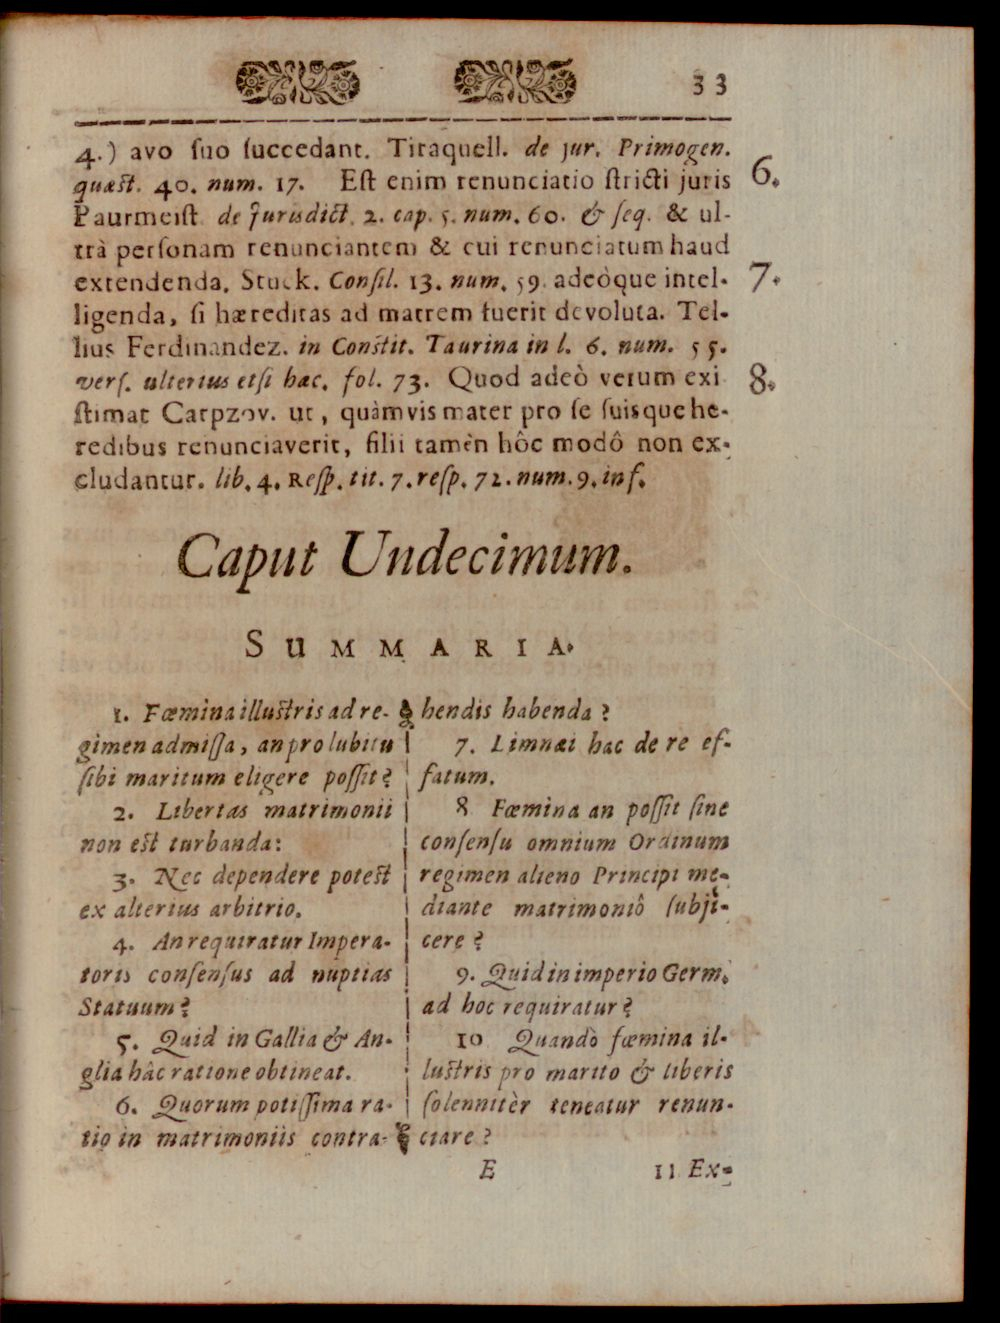 33
4.) avo ſuo ſuccedant. Tiraquell. de jur. Primogen.
quæſt. 40. num. 17. Eſt enim renunciatio ſtricti juris 6.
Paurmeiſt de Jurisdict. 2. cap. 5. num. 60. & ſeq. & ul-
trà perſonam renunciantem & cui renunciatum haud
extendenda. Stuck. Conſil. 13. num. 59. adeòque intel- 7.
ligenda, ſi hæreditas ad matrem fuerit devoluta. Tel-
lius Ferdinandez. in Conſtit. Taurina in l. 6. num. 55.
verſ. ulterius etſi hac. fol. 73. Quod adeò verum exi 8.
ſtimat Carpzov. ut, quàmvis mater pro ſe ſuisque he-
redibus renunciaverit, filii tamèn hôc modô non ex-
cludantur. lib. 4. Reſp. tit. 7. reſp. 72. num. 9. inf.
Caput Undecimum.
SUMMARIA.
1. Fœmina illuſtris ad re-
gimen admiſſa, an pro lubitu
ſibi maritum eligere poſſit?
2. Libertas matrimonii
non eſt turbanda:
3. Nec dependere poteſt
ex alterius arbitrio.
4. An requiratur Impera-
toris conſenſus ad nuptias
Statuum?
5. Quid in Gallia & An-
glia hâc ratione obtineat.
6. Quorum potiſſima ra-
tio in matrimoniis contra-
hendis habenda?
7. Limnæi hac de re ef-
fatum.
8 Fœmina an poſſit ſine
conſenſu omnium Ordinum
regimen alieno Principi me-
diante matrimoniô ſubji-
cere?
9. Quid in imperio Germ.
ad hoc requiratur?
10 Quandò fœmina il-
luſtris pro marito & liberis
ſolennitèr teneatur renun-
ciare?
E 11 Ex-